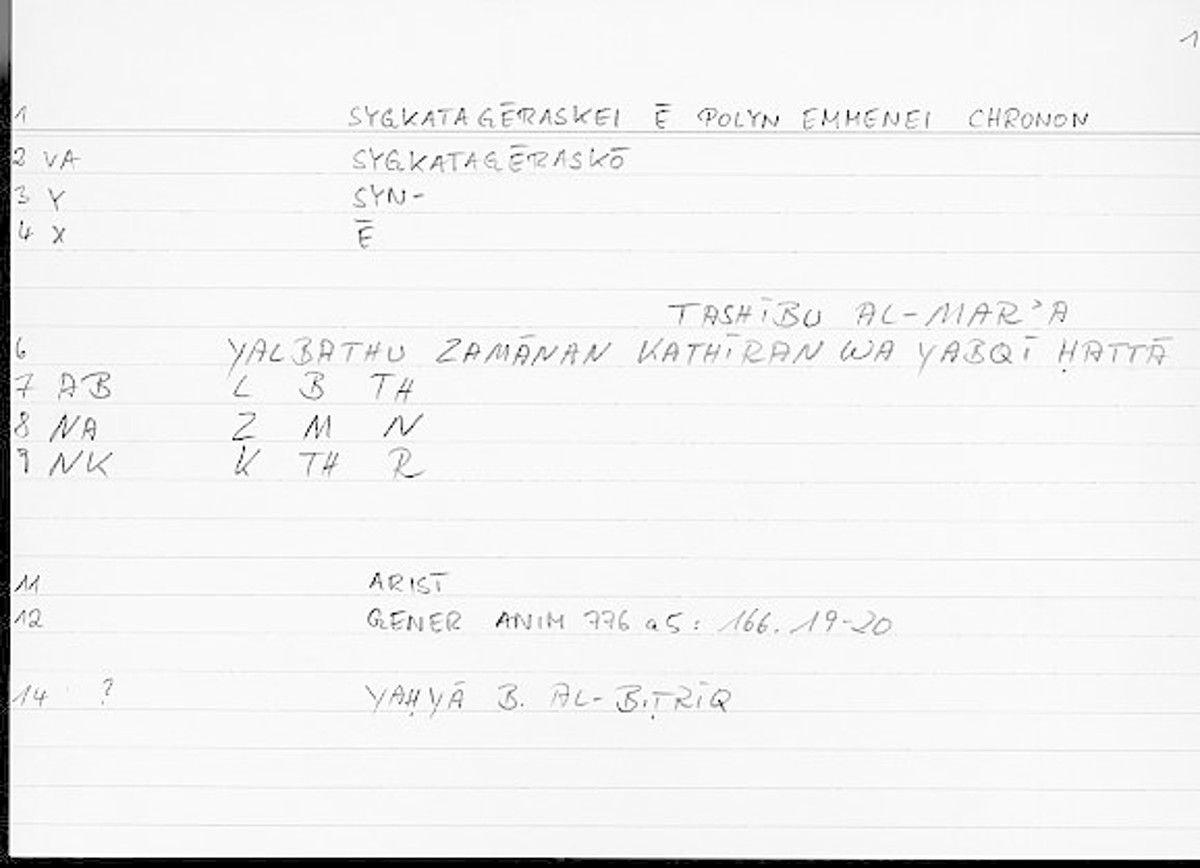 1
1 SYGKATAGĒRASKEI Ē POLYN EMMENEI CHRONON
2 VA SYGKATAGĒRASKŌ
3 Y SYN-
4 X Ē
TASHĪBU AL-MARʾA
6 YALBATHU ZAMĀNAN KATHĪRAN WA YABQĪ ḤATTĀ
7 AB L B TH
8 NA Z M N
9 NK K TH R
11 ARIST
12 GENER ANIM 776 a5: 166. 19-20
14 ? YAḤYĀ B. AL-BIṬRĪQ